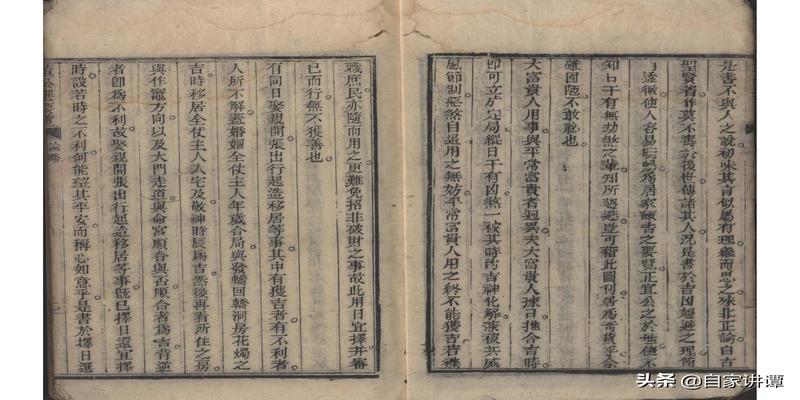 是書不與人之說初味其言似屬有理繼而思之殊非正論自古
聖賢著作莫不壽於後世傳諸其人況是書於吉凶趨避之理簡
透徹使人容易為居家諏吉之要覽正宜公之於世使不
知日干有無凶煞之輩知所趨避豈可藉此圖刊居為奇貨乎余
雖固陋不敢脫也
大富貴人用事與平常富貴者迥異夫大富貴人擇日推合吉時
即可立於定局縱日干有凶煞一被其時內吉神化解猴被其威
風節制惡煞自退用之無妨平常富貴人用之終不能獲吉若裸
職庶民亦隨而用之更難免招非破財之事故此用日宜擇并審
已而行無不獲善也
有同日娶親開張出行起造移居等事其中有獲吉者有不利者
人所不解蓋婚姻全仗主人年歲合局與發轎回轎洞房花燭之
吉時移居全仗主人入宅及敬神時辰為吉然後再看所住之房
與作竈方向以及大門走道與命宮順合與否順合者為吉背逆
者即為不利故娶親開張出行起造移居等事既已擇日還宜擇
時設若時之不利何能望其平安而稱心如意乎是書於擇日選
論略
头条 @自家讲谭